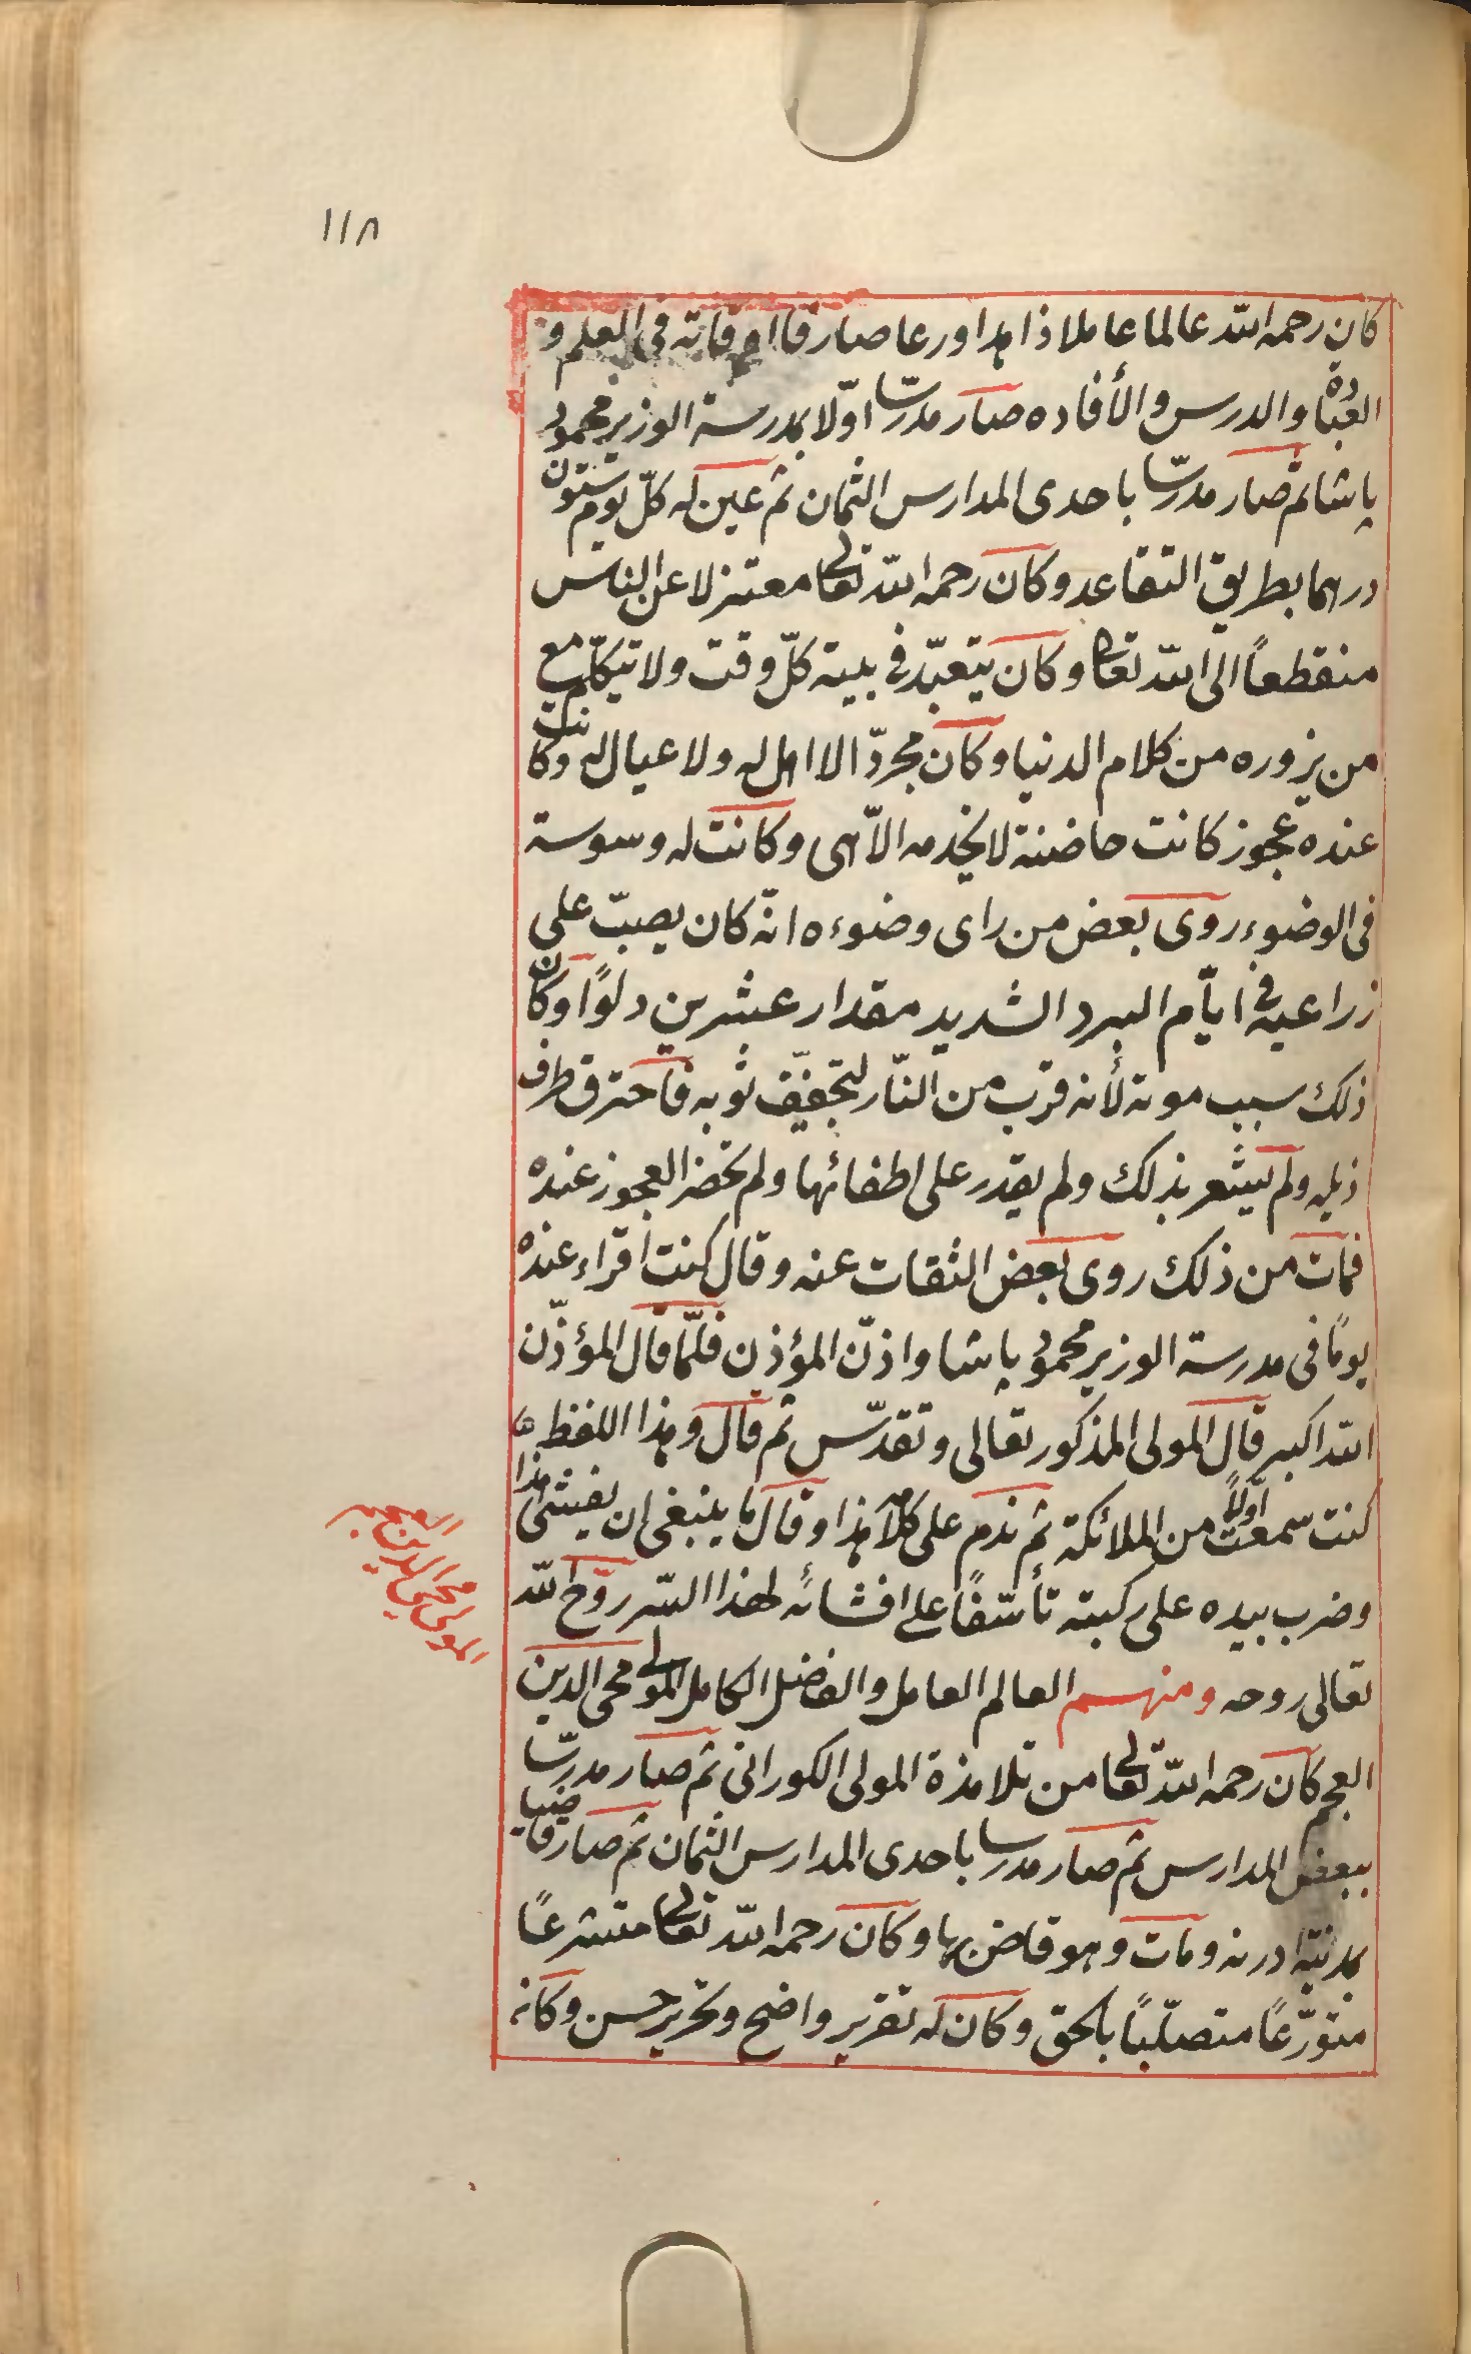 ١١٨
كان رحمه الله عالما عاملا ذاهدا ورعا صارفا اوقاته فى العلم و
العبادة والدرس والأفاده صار مدرّسا اوّلا بمدرسة الوزير محمود
پاشا ثم صار مدرّسا باحدى المدارس الثمان ثم عين له كلّ يوم ستون
درهما بطريق التقاعد وكان رحمه الله تعالى معتزلا عن الناس
منقطعاً الى الله تعالى وكان يتعبّد فى بيته كلّ وقت ولا يتكلّم مع
من يزوره من كلام الدنيا وكان مجرّدا لا اهل له ولا عيال له وكانت
عنده عجوز كانت حاضنة لا يخدمه الاّ هى وكانت له وسوسة
فى الوضوء روى بعض من راى وضوءه انّه كان يصبّ على
زراعيه فى ايّام البرد الشديد مقدار عشرين دلوًا وكان
ذلك سبب موته لأنه قرب من النّار لتجفيف ثوبه فاحترق طرف
ذيله ولم يشعر بذلك ولم يقدر على اطفائها ولم تحضر العجوز عنده
فمات من ذلك روى بعض الثقات عنه وقال كنت أقراء عنده
يومًا فى مدرسة الوزير محمود پاشا واذّن المؤذن فلمّا قال المؤذّن
الله اكبر قال المولى المذكور تعالى وتقدّس ثم قال وهذا اللفظ
كنت سمعت اوّلاً من الملائكة ثم ندم على كلامه هذا وقال ما ينبغى ان يفشى هذا
وضرب بيده على ركبته تأسّفًا على افشائه لهذا السّر روّح الله
تعالى روحه ومنهم العالم العامل والفاضل الكامل المولى محى الدين
العجم كان رحمه الله تعالى من تلامذة المولى الكورانى ثم صار مدرّسا
ببعض المدارس ثم صار مدرسا باحدى المدارس الثمان ثم صار قاضيا
بمدينة ادرنه ومات وهو قاض بها وكان رحمه الله تعالى متشرعًا
متورّعًا متصلّبًا بالحق وكان له تقرير واضح وتحرير حسن وكانه
المولى محى الدين العجم